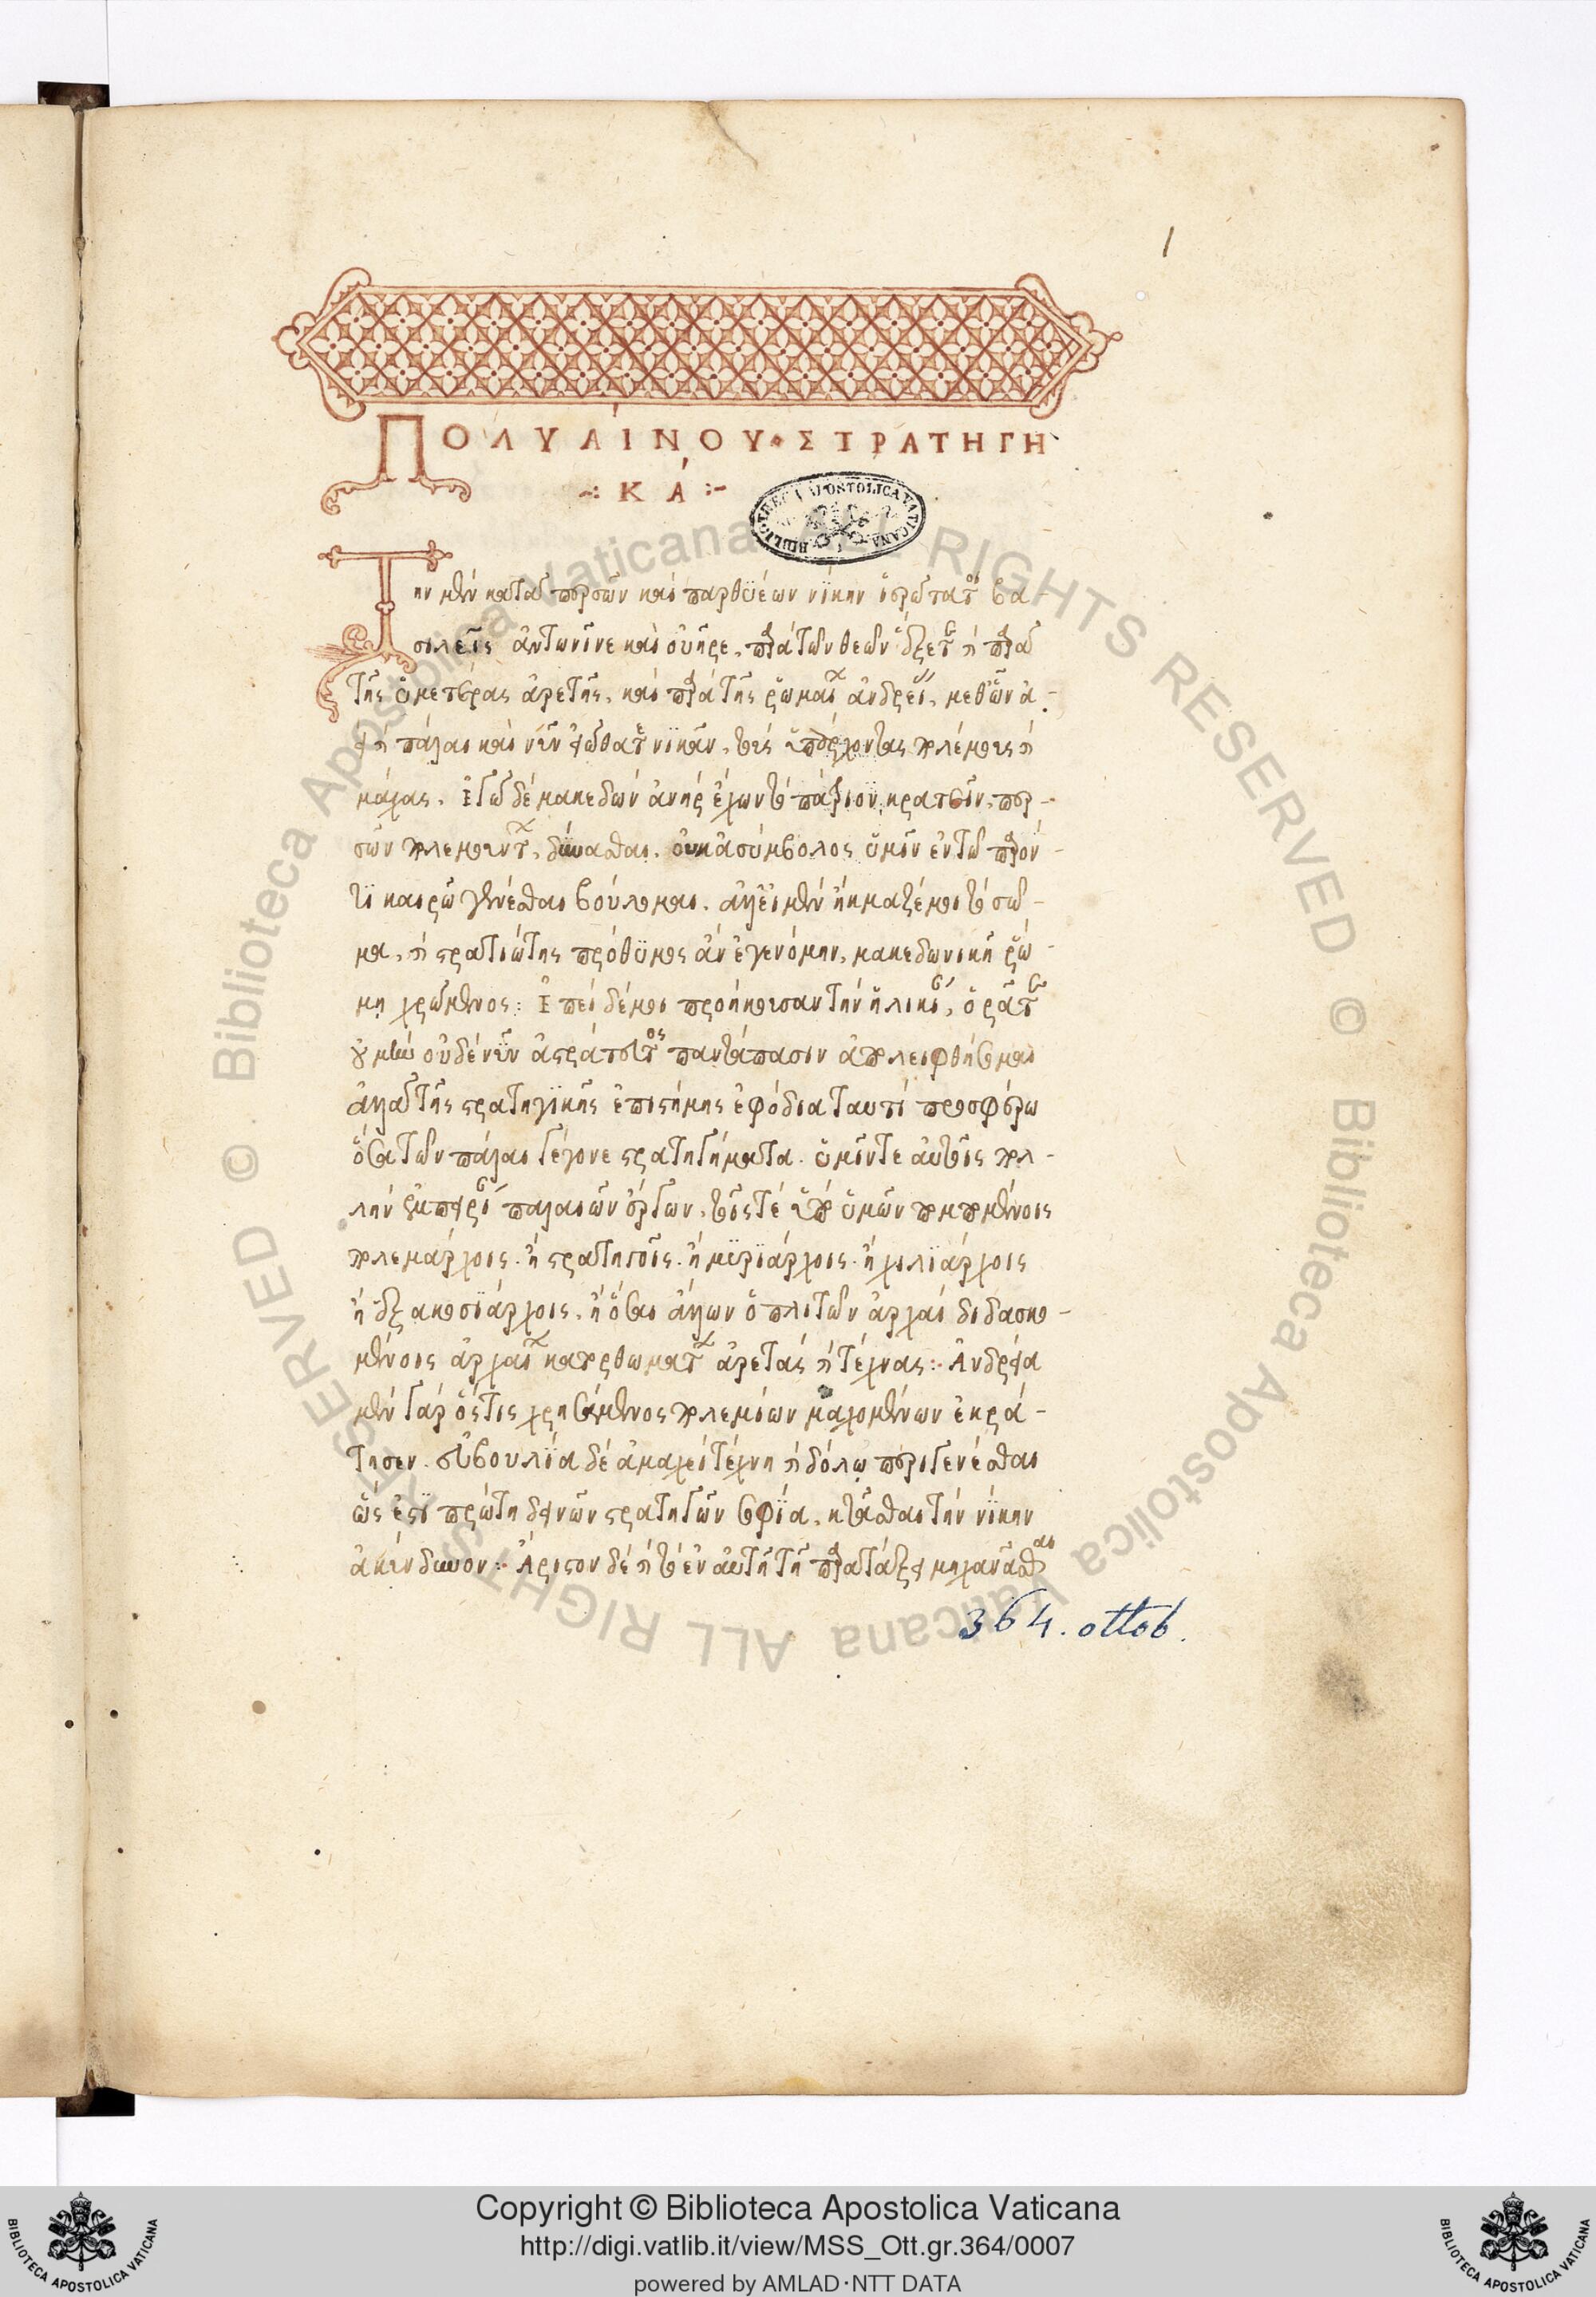 1
ΠΟΛΥΑΙΝΟΥ· ΣΤΡΑΤΗΓΗ
-: ΚΆ :-
Τὴν μὲν κατὰ περσῶν καὶ παρθϋέων νίκην ἱερώτατοι βα-
σιλεῖς ἀντωνῖνε καὶ οὐῆρε, παρὰ τῶν θεῶν ἕξετε καὶ παρὰ
τῆς ὑμετέρας ἀρετῆς, καὶ παρὰ τῆς ῥωμαίων ἀνδρείας, μεθ' ὧν ἀ-
εὶ καὶ πάλαι καὶ νῦν εἰώθατε νικᾶν, τοὺς ὑπάρχοντας πολέμους καὶ
μάχας. Ἐγὼ δὲ μακεδὼν ἀνὴρ ἔχων τὸ πάτριον, κρατεῖν περ-
σῶν πολεμούντων, δύνασθαι. οὐκ ἀσύμβολος ὑμῖν ἐν τῷ παρόν-
τι καιρῷ γενέσθαι βούλομαι. ἀλλ' εἰ μὲν ἤκμαζέ μοι τὸ σῶ-
μα, καὶ στρατιώτης πρόθυμος ἂν ἐγενόμην, μακεδωνικῇ ῥώ-
μῃ χρώμενος: Ἐπεὶ δέ με προήκουσαν τὴν ἡλικίαν, ὁρᾶτε
οὐ μὴν οὐδὲ νῦν ἀστράτευτος παντάπασιν ἀπολειφθήσομαι
ἀλλὰ τῆς στρατηγικῆς ἐπιστήμης ἐφόδια ταυτὶ προσφέρω
ὅσα τῶν πάλαι γέγονε στρατηγήματα. ὑμῖν τε αὐτοῖς πολ-
λὴν ἐμπειρίαν παλαιῶν ἔργων, τοῖς τε ὑπὸ ὑμῶν πεμπομένοις
πολεμάρχοις. ἢ στρατηγοῖς. ἢ μυριάρχοις. ἢ χιλιάρχοις
ἢ ἑξακοσιάρχοις, ἢ ὅσαι ἄλλων ὁπλιτῶν ἀρχαὶ διδασκο-
μένοις ἀρχαίων κατορθωμάτων ἀρετὰς καὶ τέχνας:- Ἀνδρεία
μὲν γὰρ ὅστις χρησάμενος πολεμίων μαχομένων ἐκρά-
τησεν. συμβουλία δὲ ἀμαχεὶ τέχνη καὶ δόλῳ περιγενέσθαι
ὡς ἐστὶ πρώτη δεινῶν στρατηγῶν σοφία, κτᾶσθαι τὴν νίκην
ἀκίνδυνον:- Ἄριστον δὲ καὶ τὸ ἐν αὐτῇ τῇ παρατάξει μηχανᾶσθαι
364. ottob.
BIBLIOTHECA APOSTOLICA VATICANA
© Biblioteca Apostolica Vaticana ALL RIGHTS RESERVED
© Biblioteca Apostolica Vaticana ALL RIGHTS RESERVED
Copyright © Biblioteca Apostolica Vaticana
http://digi.vatlib.it/view/MSS_Ott.gr.364/0007
powered by AMLAD·NTT DATA
BIBLIOTECA APOSTOLICA VATICANA
BIBLIOTECA APOSTOLICA VATICANA